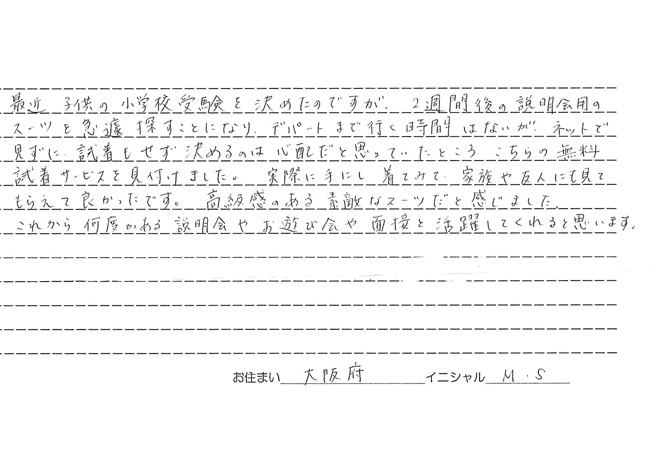 最近 子供の小学校受験を決めたのですが、2週間後の説明会用の
スーツを急遽探すことになり、デパートまで行く時間はないが、ネットで
見ずに、試着もせず決めるのは心配だと思っていたところ こちらの無料
試着サービスを見付けました。実際に手にし着てみて、家族や友人にも見て
もらえて良かったです。高級感のある素敵なスーツだと感じました。
これから何度かある説明会やお遊び会や面接と活躍してくれると思います。
お住まい 大阪府 イニシャル M.S